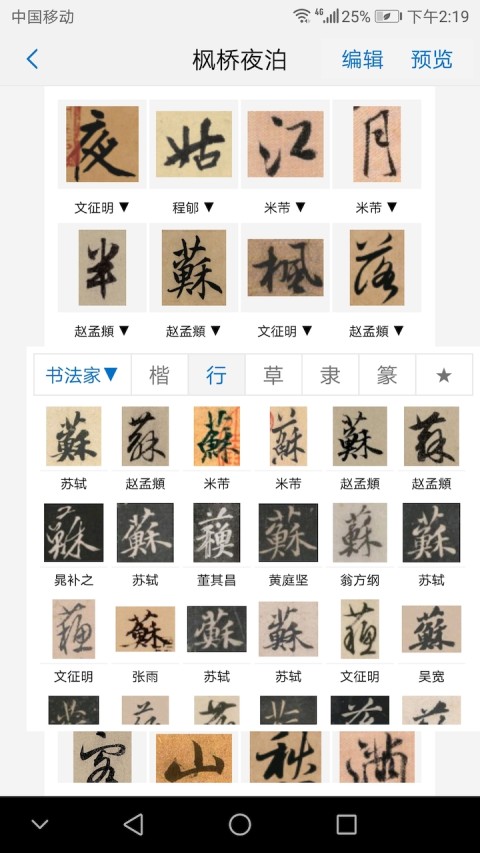 中国移动 4G 25% 下午2:19
枫桥夜泊 编辑 预览
夜 姑 江 月
文征明▼ 程郇▼ 米芾▼ 米芾▼
半 蘇 楓 落
赵孟頫▼ 赵孟頫▼ 文征明▼ 赵孟頫▼
书法家▼ 楷 行 草 隶 篆 ★
蘇 蘇 蘇 蘇 蘇 蘇
苏轼 赵孟頫 米芾 米芾 赵孟頫 赵孟頫
蘇 蘇 蘇 蘇 蘇 蘇
晁补之 苏轼 董其昌 黄庭坚 翁方纲 苏轼
蘇 蘇 蘇 蘇 蘇 蘇
文征明 张雨 苏轼 苏轼 文征明 吴宽
客 山 秋 滿